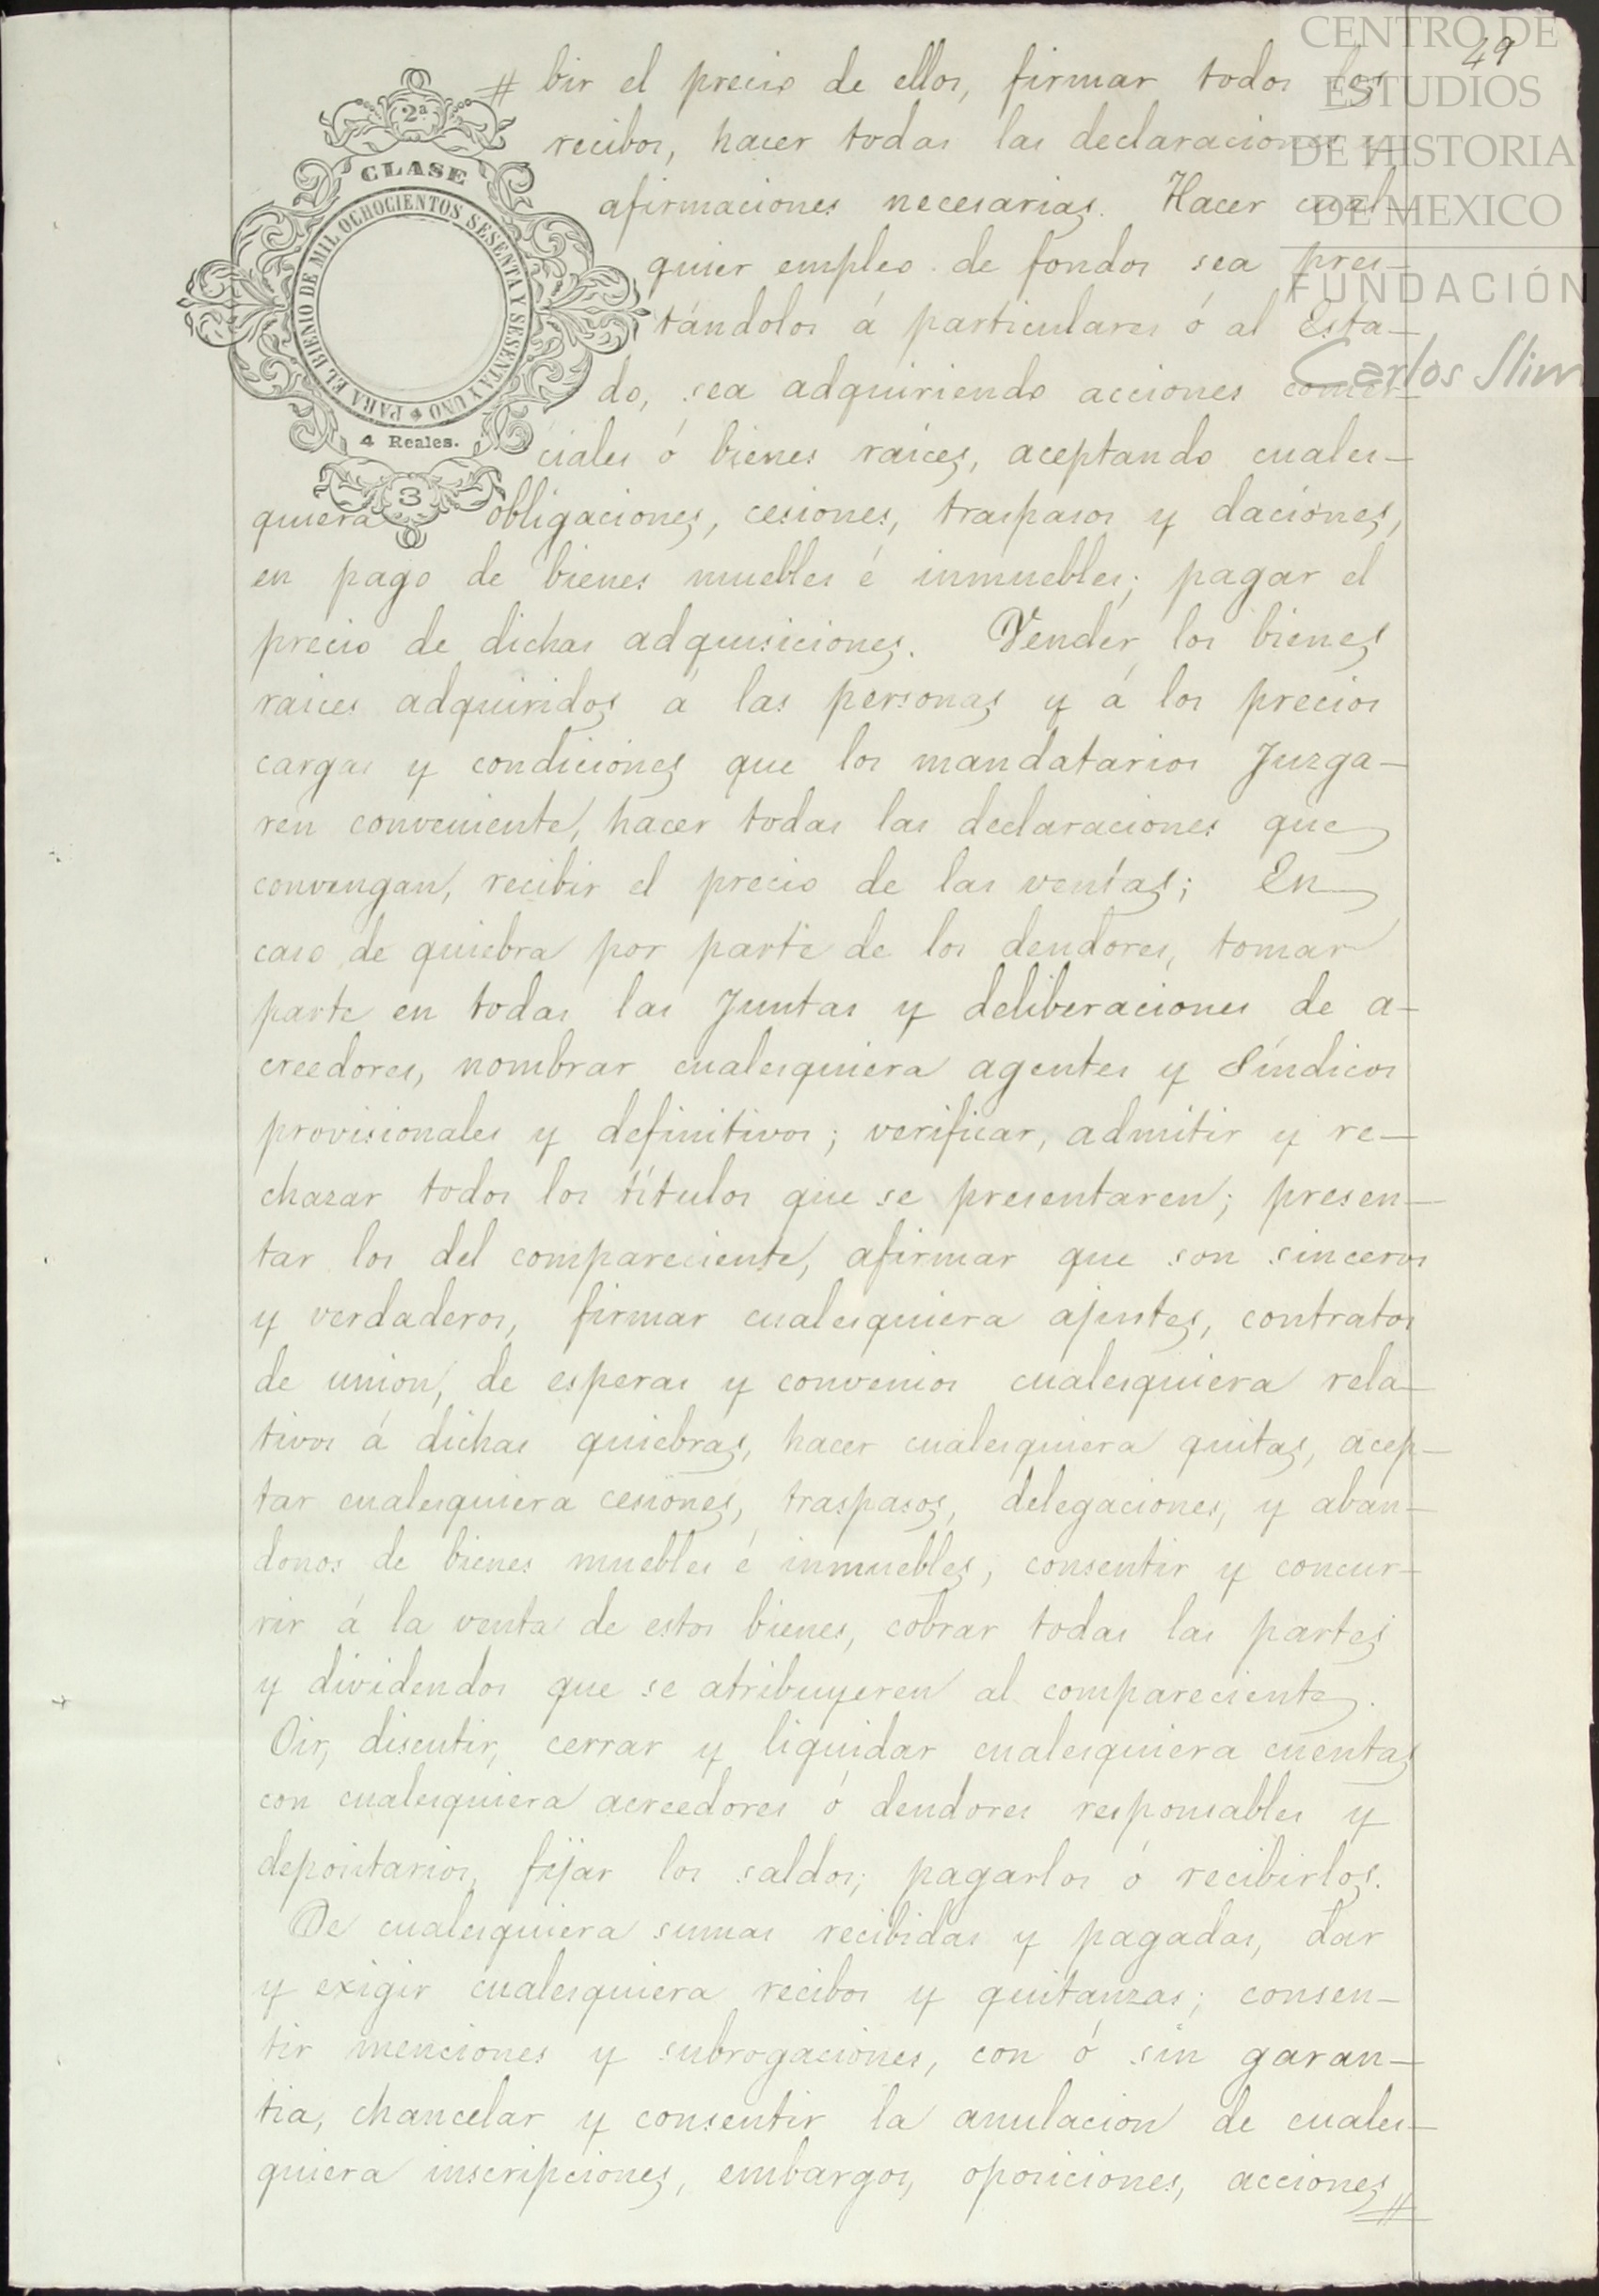 49
# bir el precio de ellos, firmar todos los
recibos, hacer todas las declaraciones y
afirmaciones necesarias. Hacer cual-
quier empleo de fondos sea pres-
tándolos á particulares ó al Esta-
do, sea adquiriendo acciones comer-
ciales ó bienes raíces, aceptando cuales-
quiera obligaciones, cesiones, traspasos y daciones,
en pago de bienes muebles é inmuebles; pagar el
precio de dichas adquisiciones. Vender los bienes
raices adquiridos á las personas y á los precios
cargas y condiciones que los mandatarios Juzga-
ren conveniente, hacer todas las declaraciones que
convengan, recibir el precio de las ventas; En
caso de quiebra por parte de los deudores, tomar
parte en todas las Juntas y deliberaciones de a-
creedores, nombrar cualesquiera agentes y Síndicos
provisionales y definitivos; verificar, admitir y re-
chazar todos los títulos que se presentaren; presen-
tar los del compareciente, afirmar que son sinceros
y verdaderos, firmar cualesquiera ajustes, contratos
de union, de esperas y convenios cualesquiera rela-
tivos á dichas quiebras, hacer cualesquiera quitas, acep-
tar cualesquiera cesiones, traspasos, delegaciones, y aban-
donos de bienes muebles é inmuebles, consentir y concur-
rir á la venta de estos bienes, cobrar todas las partes
y dividendos que se atribuyeren al compareciente.
Oir, discutir, cerrar y liquidar cualesquiera cuentas
con cualesquiera acreedores ó deudores responsables y
depositarios, fijar los saldos; pagarlos ó recibirlos.
De cualesquiera sumas recibidas y pagadas, dar
y exigir cualesquiera recibos y quitanzas; consen-
tir menciones y subrogaciones, con ó sin garan-
tia, chancelar y consentir la anulacion de cuales-
quiera inscripciones, embargos, oposiciones, acciones #
2ª
CLASE
PARA EL BIENIO DE MIL OCHOCIENTOS SESENTA Y SESENTA Y UNO
4 Reales.
3
CENTRO DE
ESTUDIOS
DE HISTORIA
DE MEXICO
FUNDACIÓN
Carlos Slim